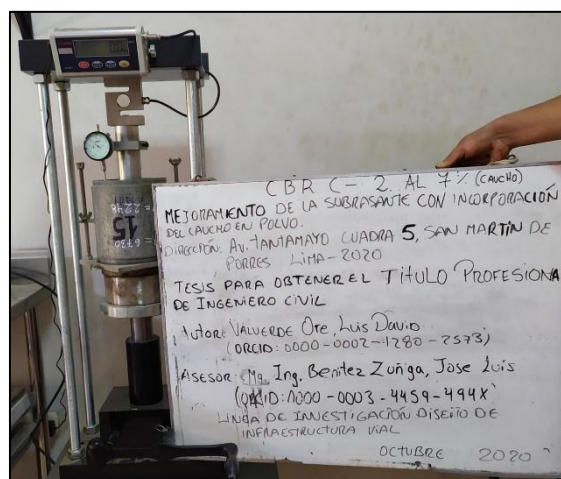 CBR C-2 AL 7% (CAUCHO)
MEJORAMIENTO DE LA SUBRASANTE CON INCORPORACIÓN
DEL CAUCHO EN POLVO.
DIRECCIÓN: AV. TANTAMAYO CUADRA 5, SAN MARTÍN DE
PORRES LIMA-2020
TESIS PARA OBTENER EL TÍTULO PROFESIONA
DE INGENIERO CIVIL
Autor: VALVERDE Ore, Luis DAVID
(ORCID: 0000-0002-1280-2573)
ASESOR: Mg. Ing. Benitez Zuñiga, Jose Luis
(ORCID: 0000-0003-4459-494X)
LINEA DE INVESTIGACIÓN DISEÑO DE
INFRAESTRUCTURA VIAL
OCTUBRE 2020
15
= 6730
= 2248